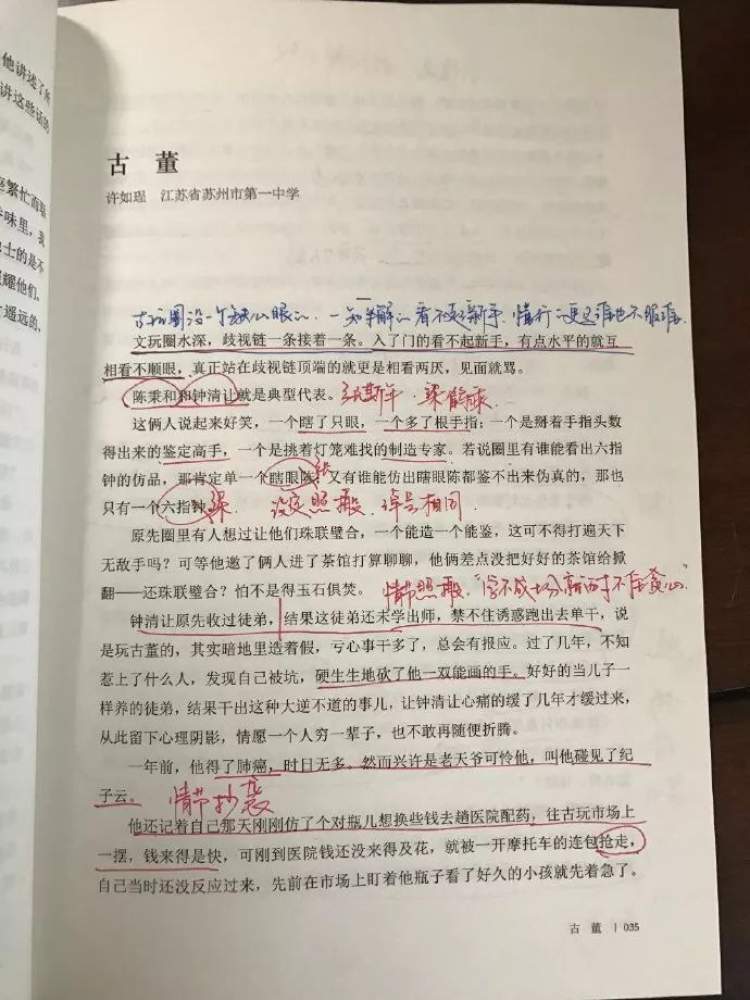 他讲述了所
讲这些话的
繁忙而琐
味里，我
士的是不
耀他们，
遥远的，
古 董
许如瑆 江苏省苏州市第一中学
一
古玩圈没一个缺心眼的，一知半解的看不起新手，懂行
文玩圈水深，歧视链一条接着一条。入了门的看不起新手，有点水平的就互
相看不顺眼，真正站在歧视链顶端的就更是相看两厌，见面就骂。
陈秉和和钟清让就是典型代表。
这俩人说起来好笑，一个瞎了只眼，一个多了根手指；一个是掰着手指头数
得出来的鉴定高手，一个是挑着灯笼难找的制造专家。若说圈里有谁能看出六指
钟的仿品，那肯定单一个瞎眼陈；又有谁能仿出瞎眼陈都鉴不出来伪真的，那也
张
只有一个六指钟。 梁 设定照搬，绰号相同
原先圈里有人想过让他们珠联璧合，一个能造一个能鉴，这可不得打遍天下
无敌手吗？可等他邀了俩人进了茶馆打算聊聊，他俩差点没把好好的茶馆给掀
翻——还珠联璧合？怕不是得玉石俱焚。 情节照搬，
钟清让原先收过徒弟，结果这徒弟还未学出师，禁不住诱惑跑出去单干，说
是玩古董的，其实暗地里造着假，亏心事干多了，总会有报应。过了几年，不知
惹上了什么人，发现自己被坑，硬生生地砍了他一双能画的手。好好的当儿子一
样养的徒弟，结果干出这种大逆不道的事儿，让钟清让心痛的缓了几年才缓过来，
从此留下心理阴影，情愿一个人穷一辈子，也不敢再随便折腾。
一年前，他得了肺癌，时日无多。然而兴许是老天爷可怜他，叫他碰见了纪
子云。 情节抄袭
他还记着自己那天刚刚仿了个对瓶儿想换些钱去趟医院配药，往古玩市场上
一摆，钱来得是快，可刚到医院钱还没来得及花，就被一开摩托车的连包抢走，
自己当时还没反应过来，先前在市场上盯着他瓶子看了好久的小孩就先着急了。
古 董 | 035